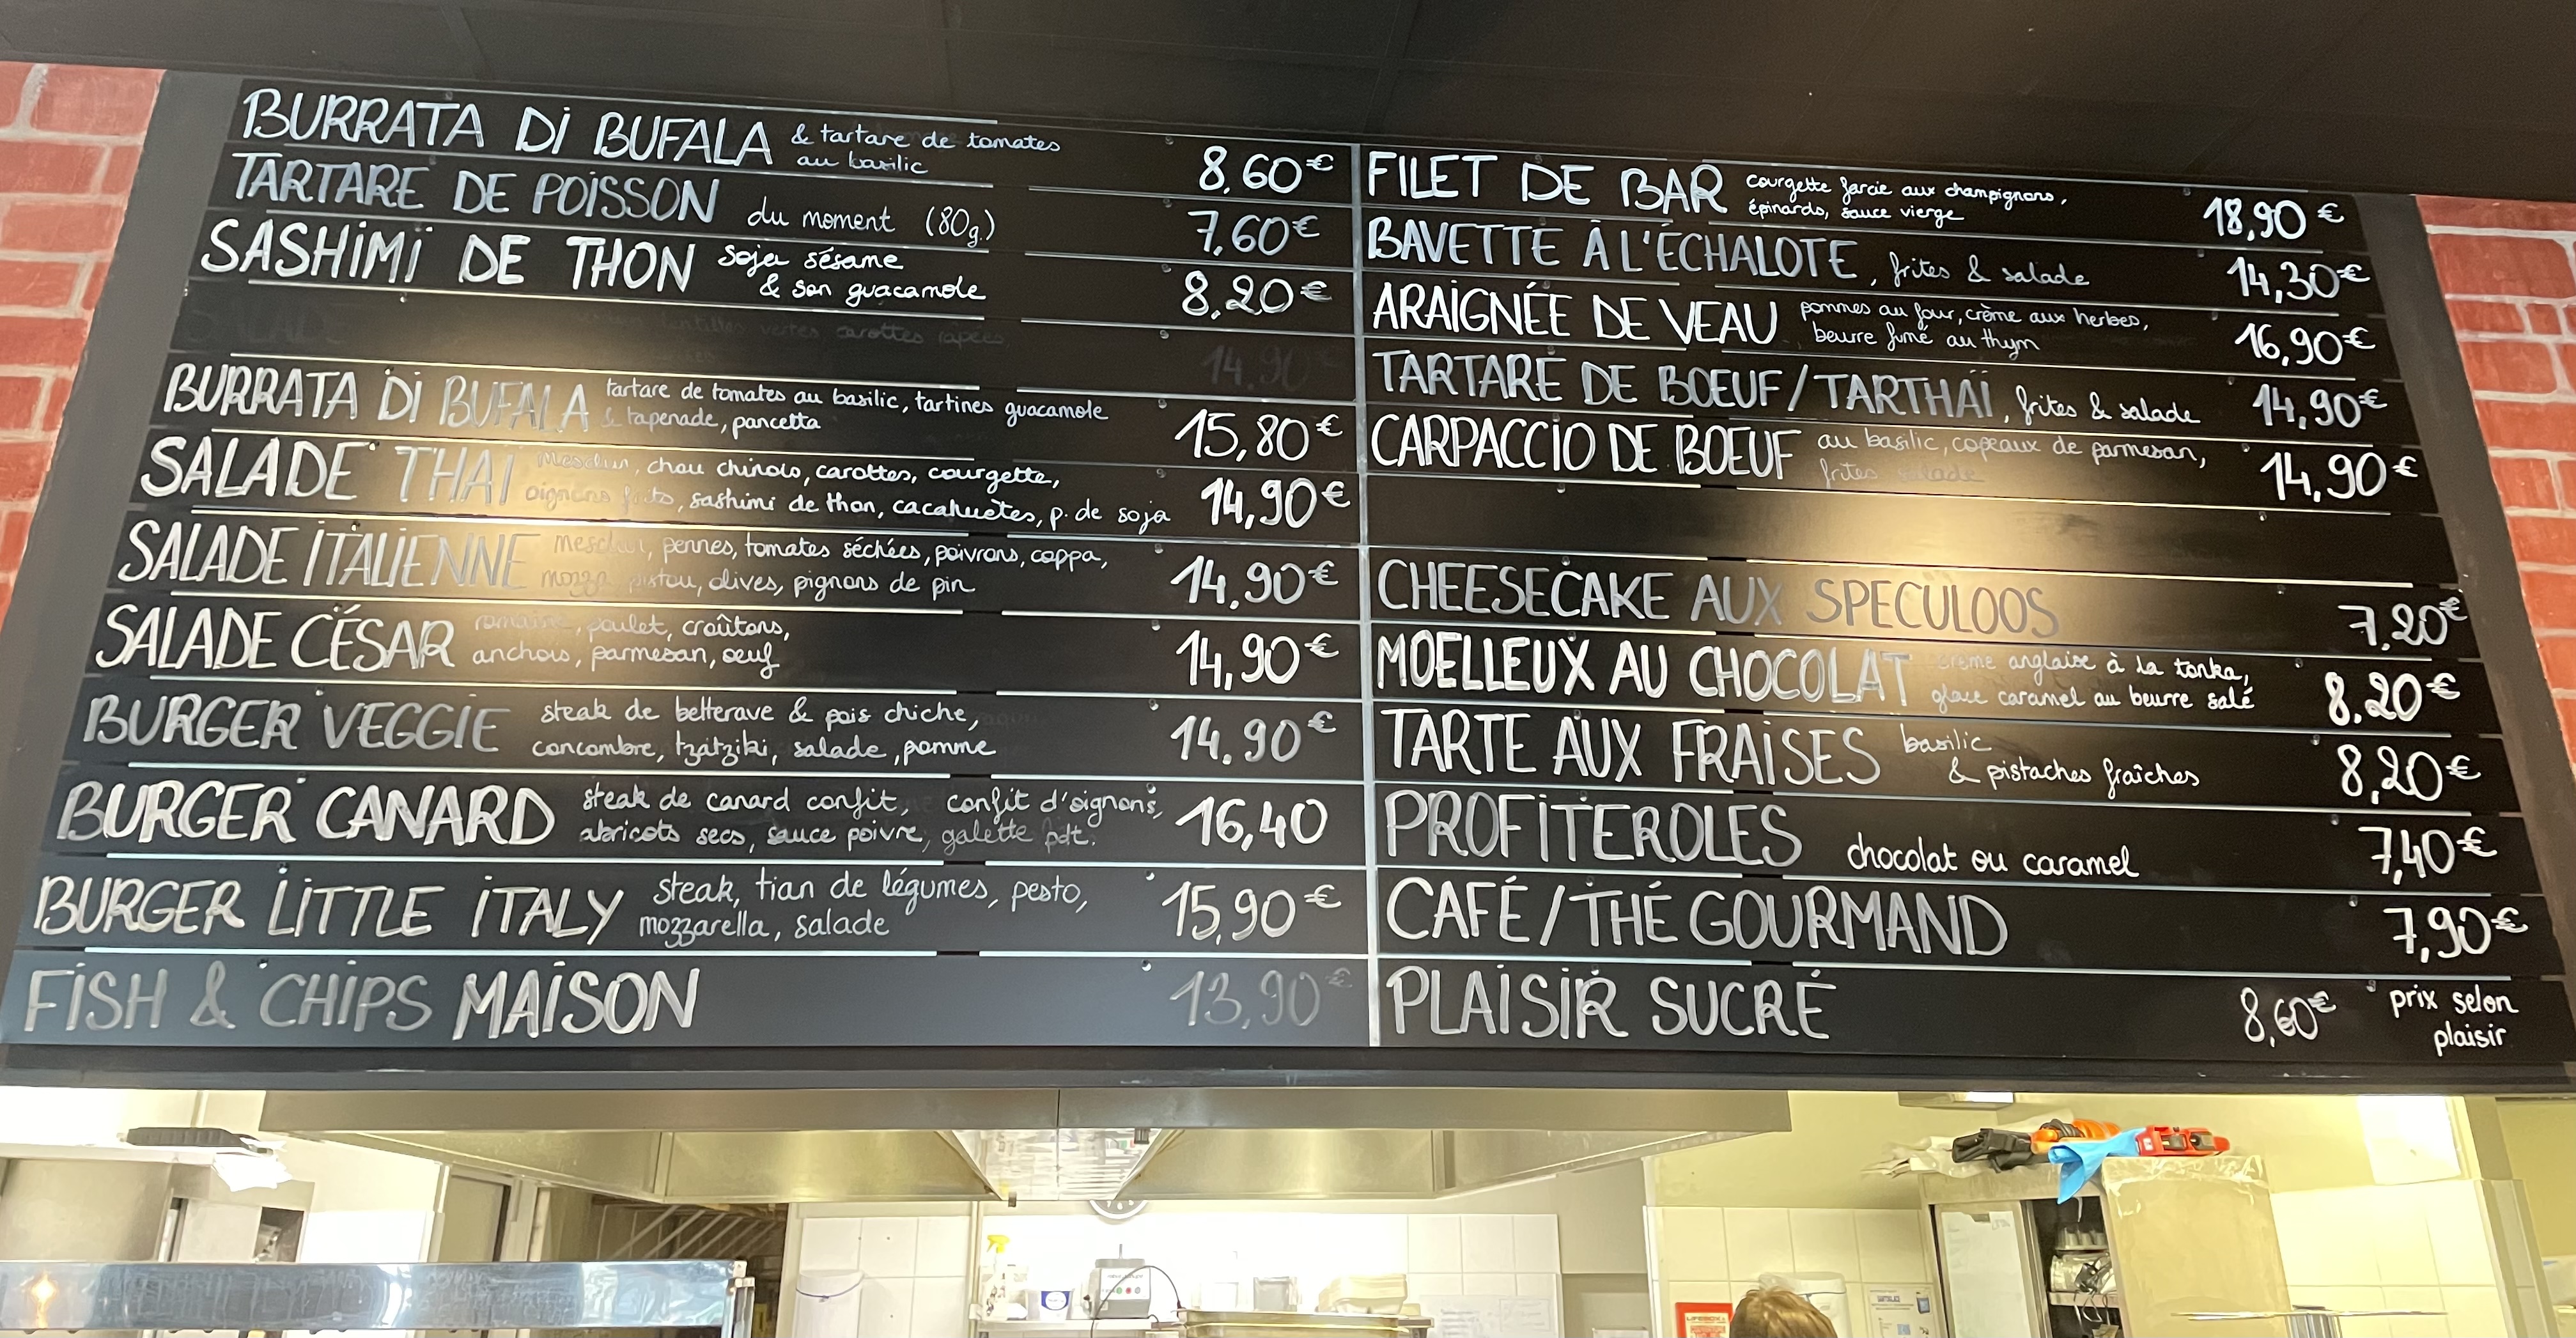 BURRATA Di BUFALA & tartare de tomates
au basilic 8,60€
TARTARE DE POiSSON du moment (80g.) 7,60€
SASHiMi DE THON soja sésame
& son guacamole 8,20€
lentilles vertes carottes rapées
14.90
BURRATA Di BUFALA tartare de tomates au basilic, tartines guacamole
& tapenade, pancetta 15,80€
SALADE THAI Mesclun, chou chinois, carottes, courgette,
oignons frits, sashimi de thon, cacahuètes, p. de soja 14,90€
SALADE iTALiENNE Mesclun, pennes, tomates séchées, poivrons, coppa,
mozza, pistou, olives, pignons de pin 14.90€
SALADE CÉSAR romaine, poulet, croûtons,
anchois, parmesan, oeuf 14,90€
BURGER VEGGIE steak de betterave & pois chiche,
concombre, tzatziki, salade, pomme 14.90€
BURGER CANARD steak de canard confit, confit d'oignons,
abricots secs, sauce poivre, galette pdt. 16,40
BURGER LiTTLE iTALY steak, tian de légumes, pesto,
mozzarella, salade 15,90€
FiSH & CHiPS MAiSON 13,90€
FiLET DE BAR courgette farcie aux champignons,
épinards, sauce vierge 18,90€
BAVETTE À L'ÉCHALOTE, frites & salade 14,30€
ARAiGNÉE DE VEAU pommes au four, crème aux herbes,
beurre fumé au thym 16,90€
TARTARE DE BOEUF/TARTHAÏ, frites & salade 14,90€
CARPACCiO DE BOEUF au basilic, copeaux de parmesan,
frites salade 14,90€
CHEESECAKE AUX SPECULOOS 7,20€
MOELLEUX AU CHOCOLAT crème anglaise à la tonka,
glace caramel au beurre salé 8,20€
TARTE AUX FRAiSES basilic
& pistaches fraîches 8,20€
PROFiTEROLES chocolat ou caramel 7,40€
CAFÉ/THÉ GOURMAND 7,90€
PLAiSiR SUCRÉ 8,60€ prix selon
plaisir